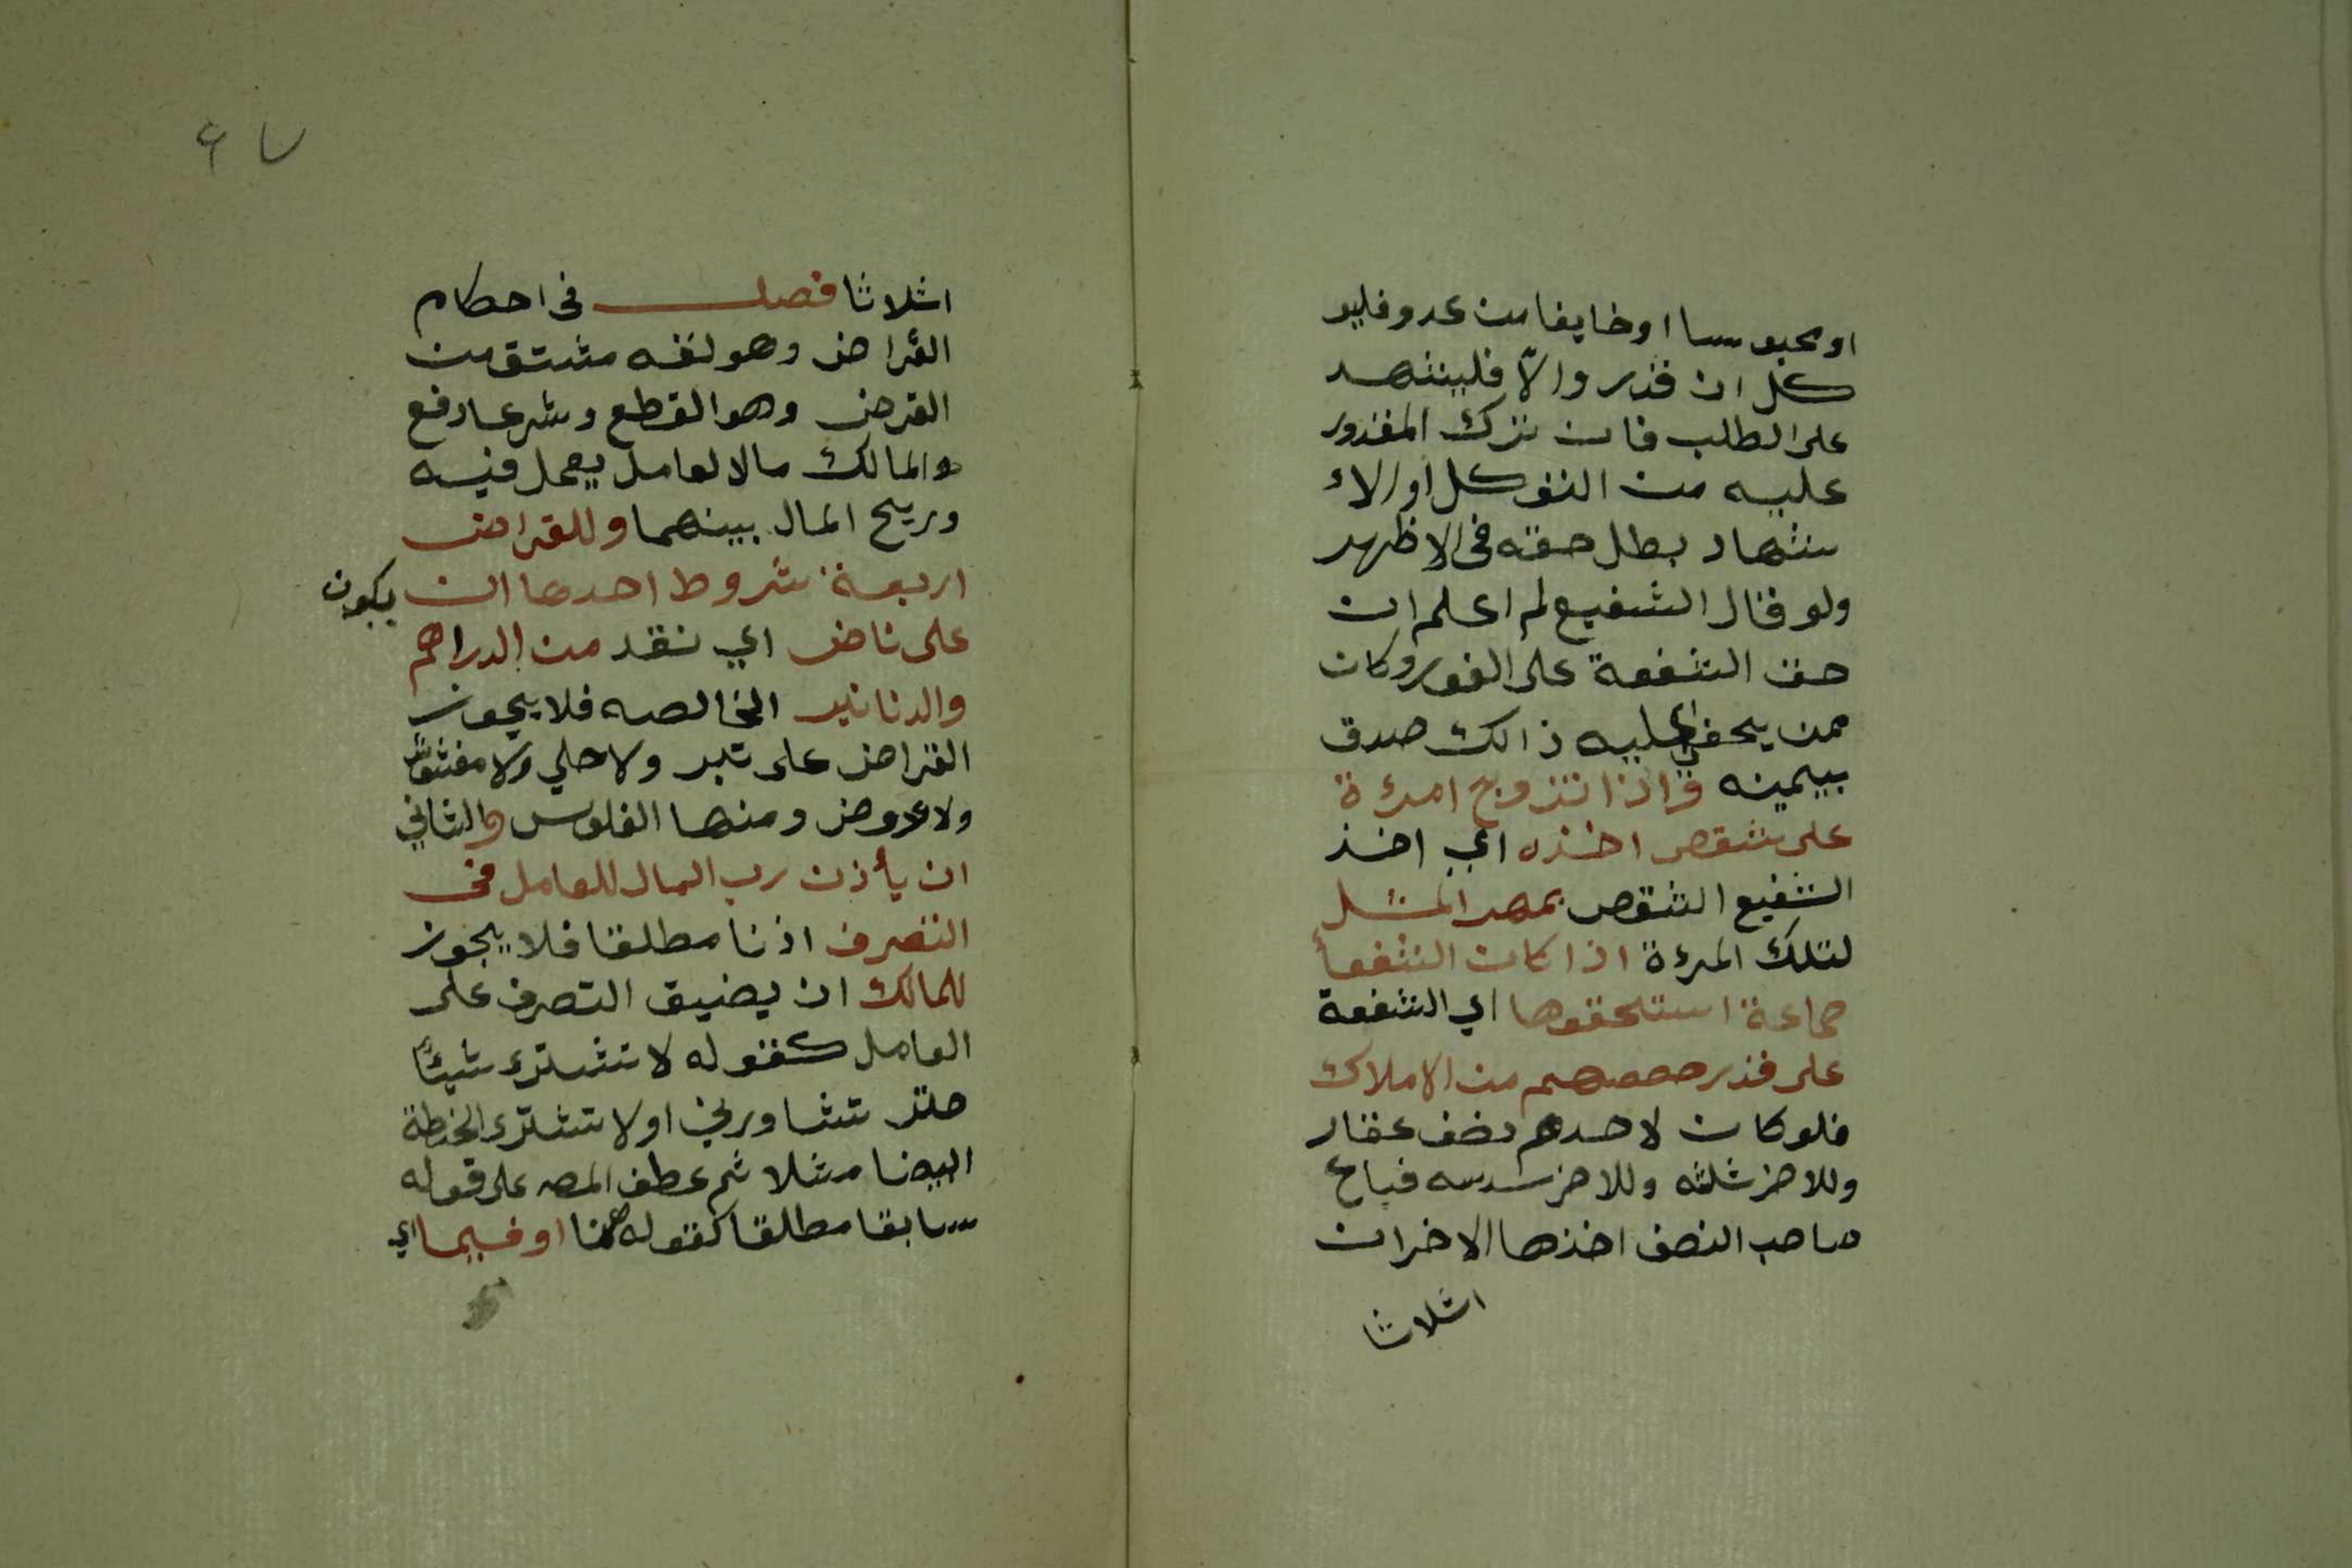 او محبوسا او خايفا من عدو فليو
كل ان قدر والّا فليشهد
على الطلب فان ترك المقدور
عليه من التوكل او الاء
شهاد بطل حقه فى الاظهر
ولو قال الشفيع لم اعلم ان
حق الشفعة على الفور وكان
ممن يخفى عليه ذالك صدق
بيمينه واذا تزوج امرءة
على شقص اخذه اي اخذ
الشفيع الشقص بمهر المثل
لتلك المرءة اذا كان الشفعأ
جماعة استحقوها اي الشفعة
على قدر حصصهم من الاملاك
فلو كان لاحدهم نصف عقار
وللاخر ثلثه وللاخر سدسه فباع
صاحب النصف اخذها الاخران
اثلاثا
٦٧
اثلاثا فصل فى احكام
القراض وهو لغه مشتق من
القرض وهو القطع وشرعا دفع
المالك مالا لعامل يعمل فيه
وربح المال بينهما وللقراض
اربعة شروط احدها ان يكون
على ناض اي نقد من الدراهم
والدنانير الخالصه فلا يجوز
القراض على تبر ولا حلي ولا مغشوش
ولا عروض ومنها الفلوس والثاني
ان يأذن رب المال للعامل فى
التصرف اذنا مطلقا فلا يجوز
للمالك ان يضيق التصرف على
العامل كقوله لا تشترى شيئًا
حتى تشاورني او لا تشترى الحنطة
البيضا مثلا ثم عطف المصـ على قوله
سابقا مطلقا كقوله هنا او فيما اي